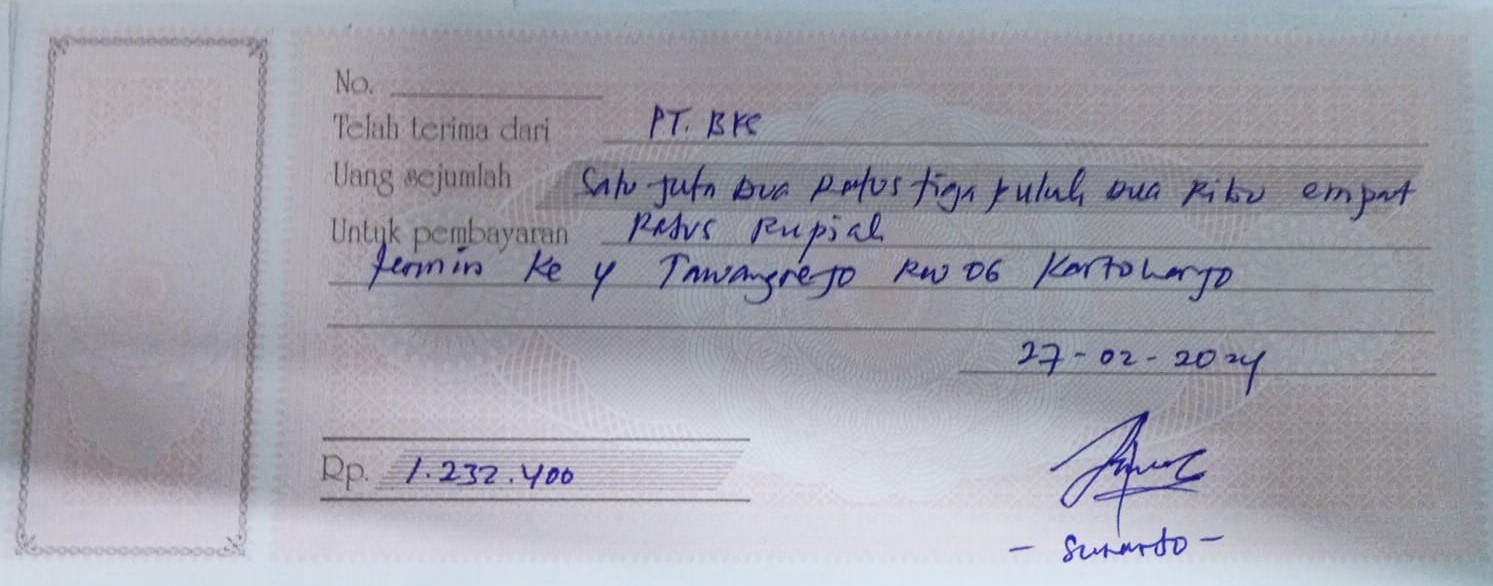 No.
Telah terima dari PT. BKS
Uang sejumlah Satu juta Dua Ratus tiga puluh Dua Ribu empat
Untuk pembayaran Ratus Rupiah
termin ke 4 Tawangrejo RW 06 Kartoharjo
27-02-2024
Rp. 1.232.400
- Sunarto -